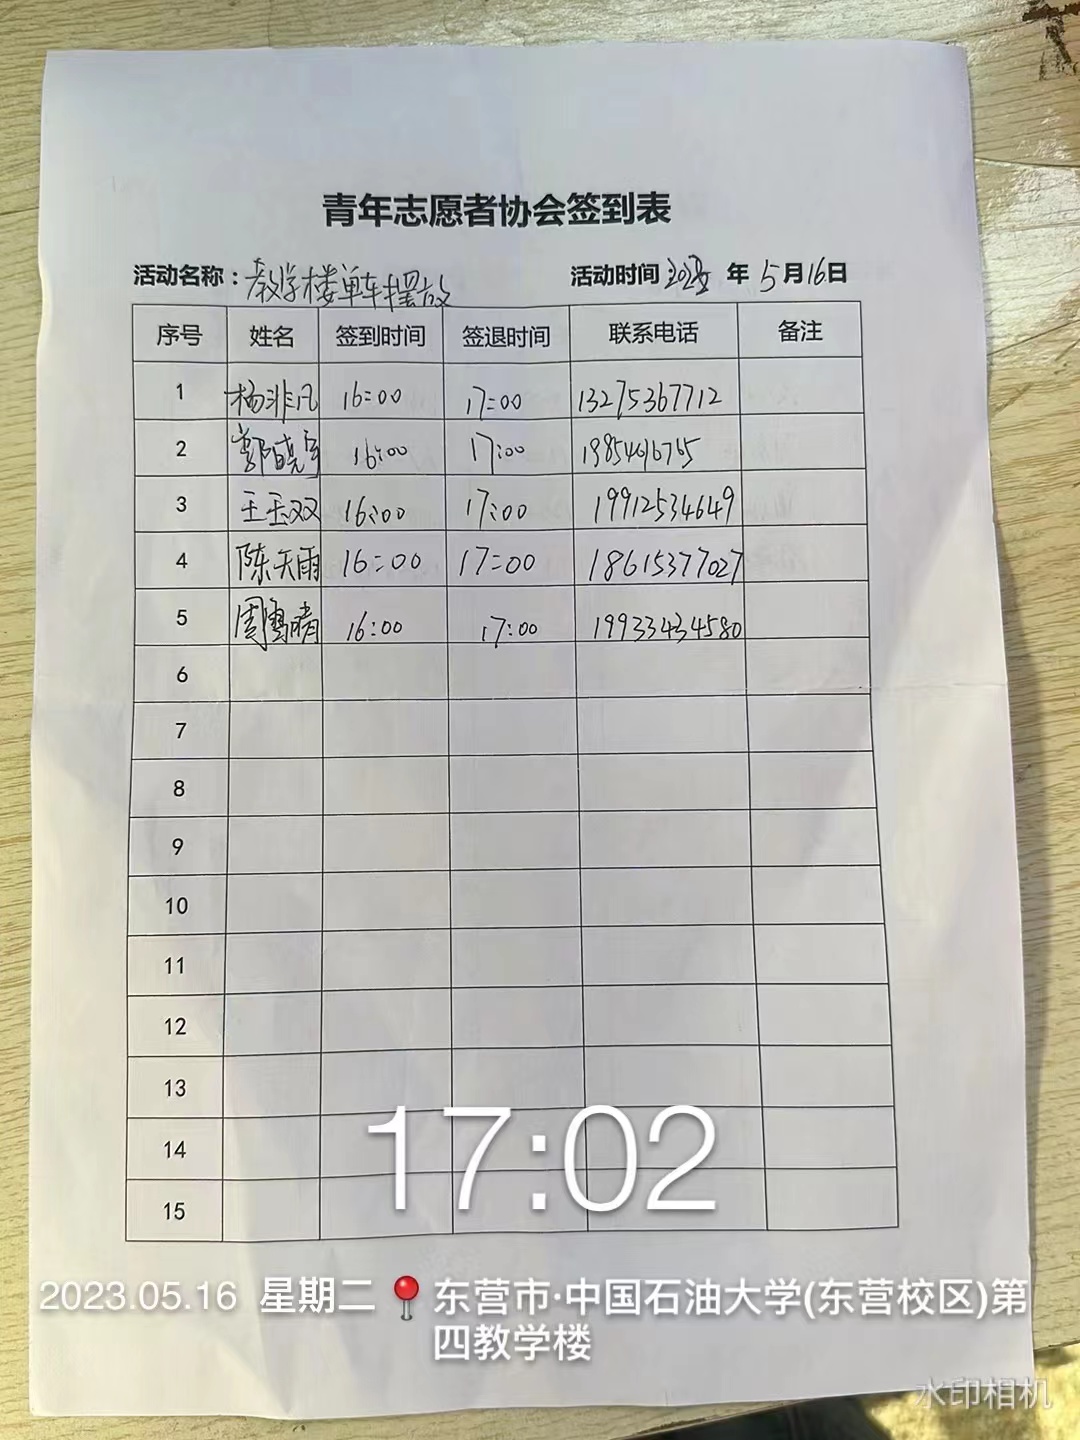 青年志愿者协会签到表
活动名称：教学楼单车摆放 活动时间 2023 年 5 月 16 日
序号 姓名 签到时间 签退时间 联系电话 备注
1 杨非凡 16:00 17:00 13275367712
2 郭晓宇 16:00 17:00
3 王玉双 16:00 17:00 19912534649
4 陈天雨 16:00 17:00 18615377027
5 周雪晴 16:00 17:00 19933434580
6
7
8
9
10
11
12
13
14
15
17:02
2023.05.16 星期二 东营市·中国石油大学(东营校区)第
四教学楼
水印相机